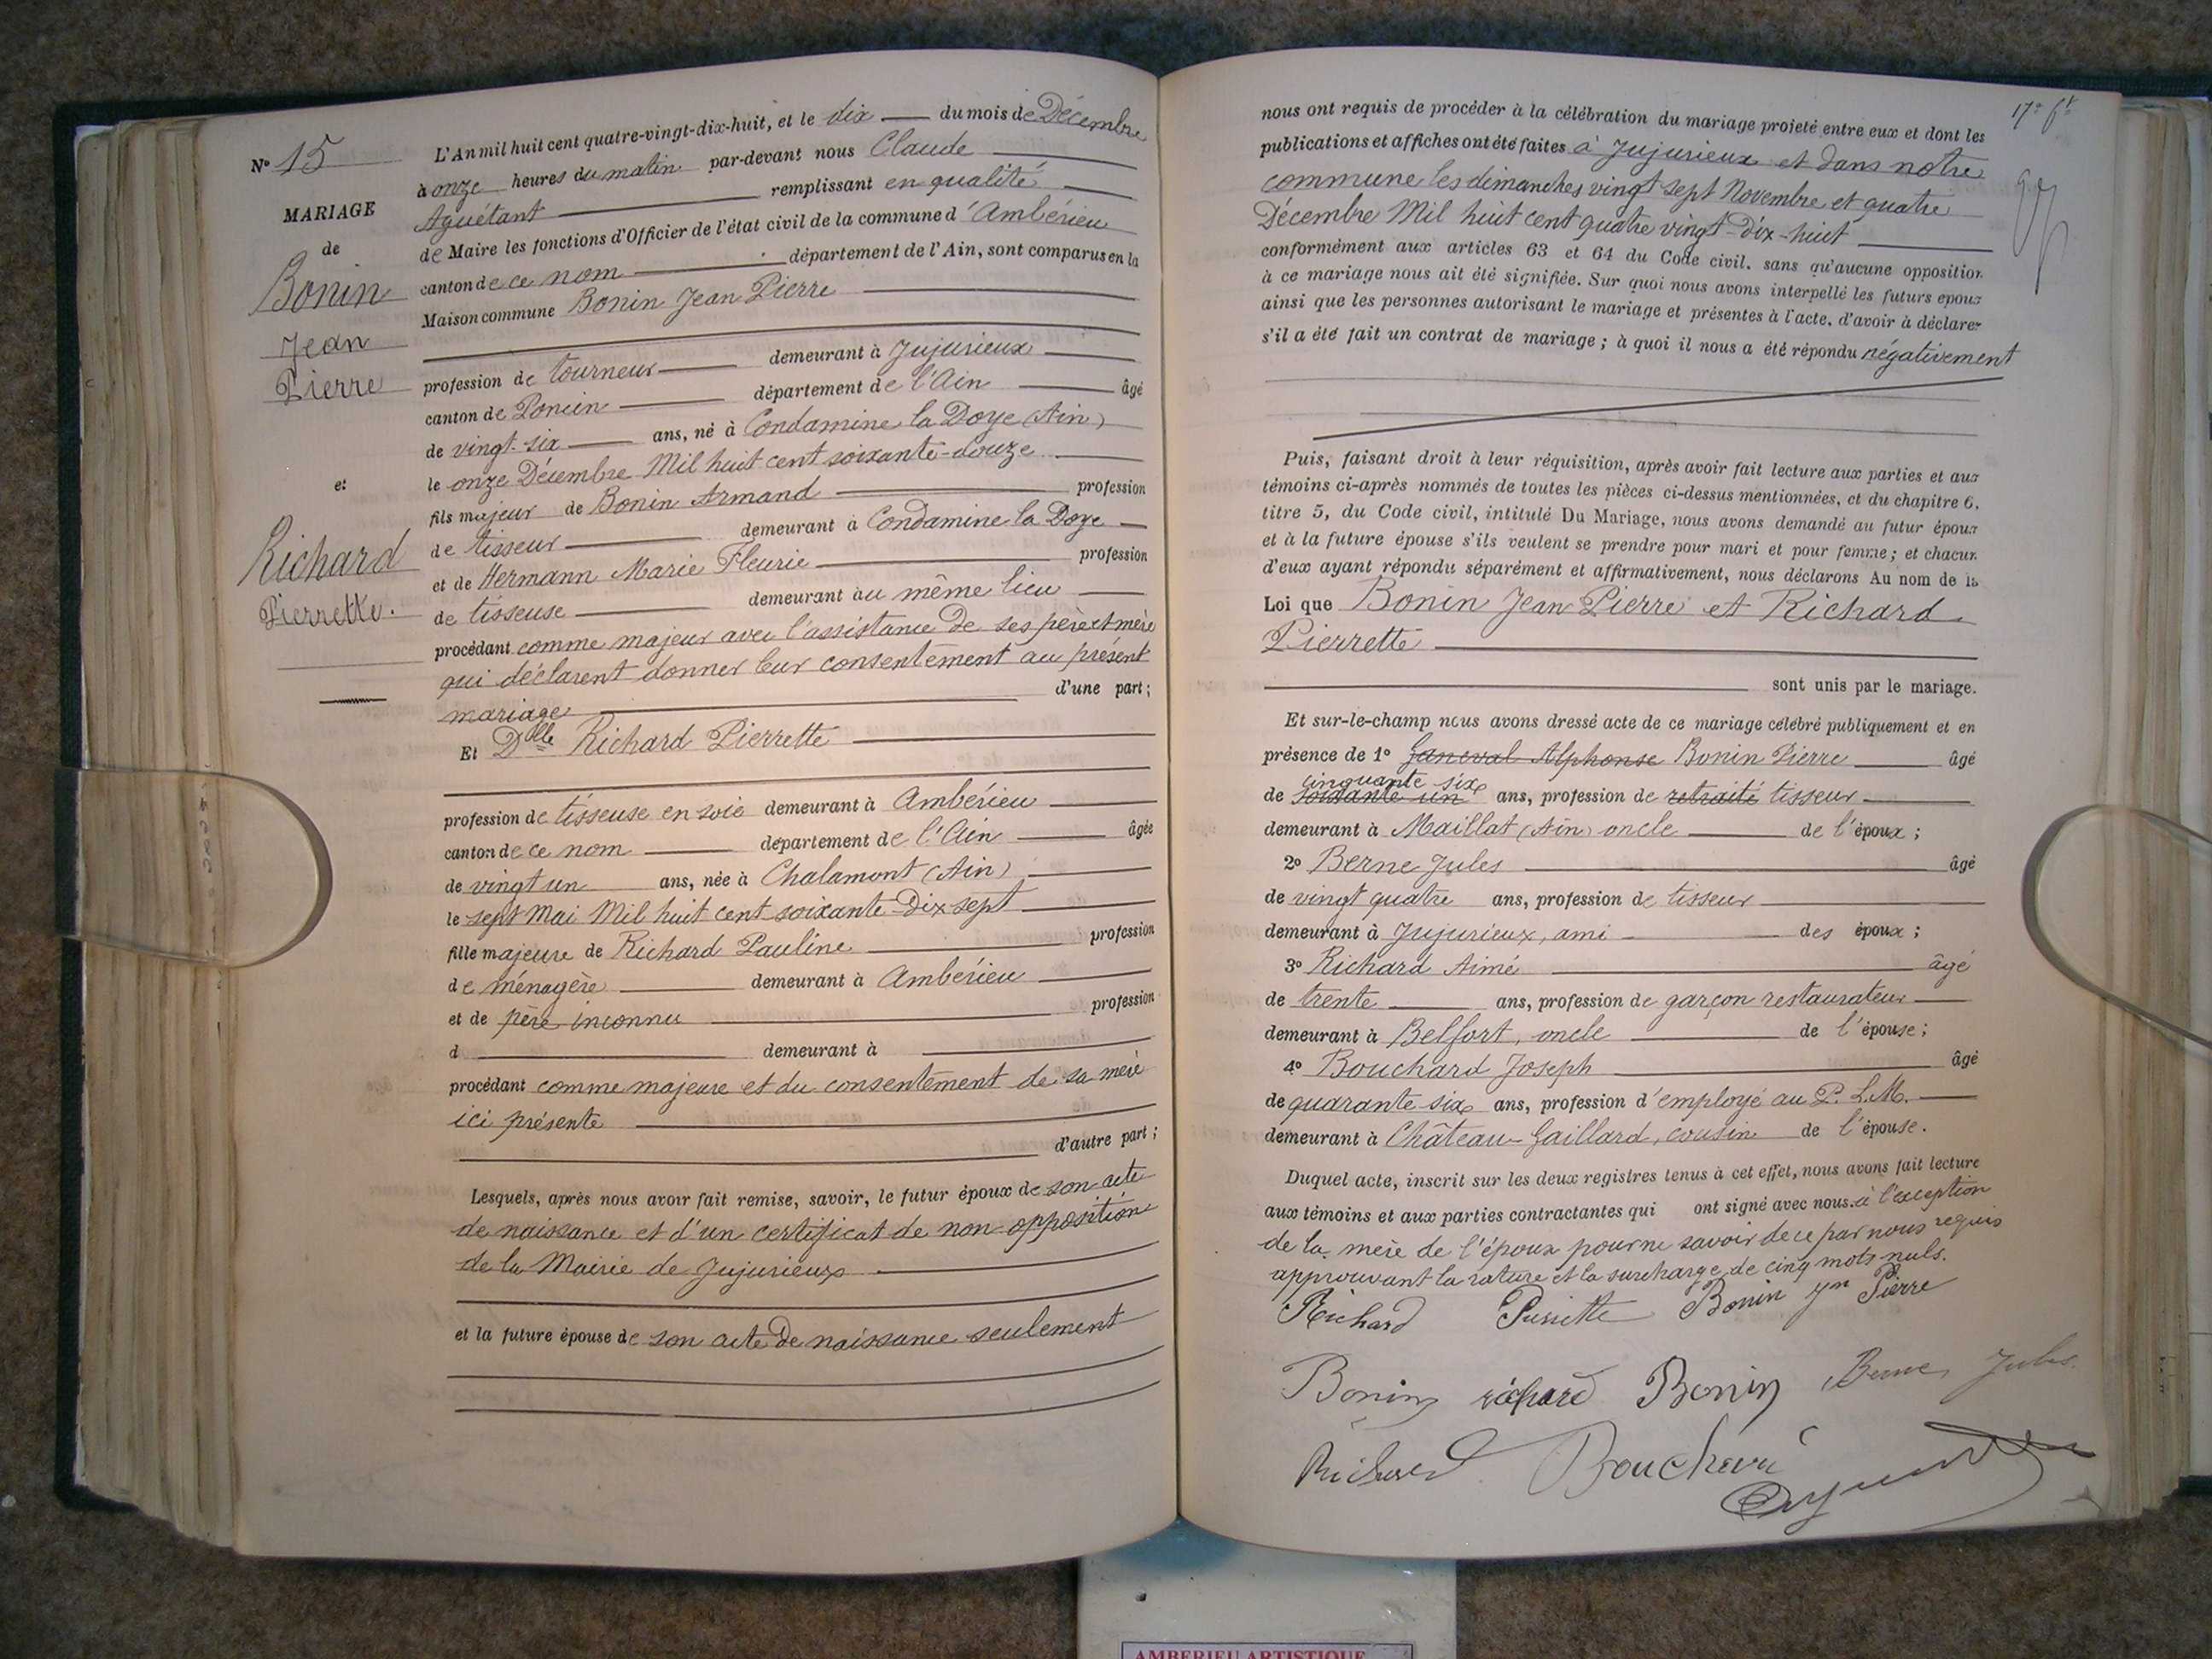 N° 15
MARIAGE
de
Bonin
Jean
Pierre
et
Richard
Pierrette.
L'An mil huit cent quatre-vingt-dix-huit, et le dix du mois de Décembre
à onze heures du matin par-devant nous Claude
Aguétant remplissant en qualité
de Maire les fonctions d'Officier de l'état civil de la commune d'Ambérieu
canton de ce nom département de l'Ain, sont comparus en la
Maison commune Bonin Jean Pierre
profession de tourneur demeurant à Jujurieux
canton de Poncin département de l'Ain âgé
de vingt-six ans, né à Condamine la Doye (Ain)
le onze Décembre Mil huit cent soixante-douze
fils majeur de Bonin Armand profession
de tisseur demeurant à Condamine la Doye
et de Hermann Marie Fleurie profession
de tisseuse demeurant au même lieu
procédant comme majeur avec l'assistance de ses père et mère
qui déclarent donner leur consentement au présent
mariage d'une part;
Et Dlle Richard Pierrette
profession de tisseuse en soie demeurant à Ambérieu
canton de ce nom département de l'Ain âgée
de vingt un ans, née à Chalamont (Ain)
le sept Mai Mil huit cent soixante-Dix sept
fille majeure de Richard Pauline profession
de ménagère demeurant à Ambérieu
et de père inconnu profession
d demeurant à
procédant comme majeure et du consentement de sa mère
ici présente
d'autre part;
Lesquels, après nous avoir fait remise, savoir, le futur époux de son acte
de naissance et d'un certificat de non-opposition
de la Mairie de Jujurieux
et la future épouse de son acte de naissance seulement
17e ft
nous ont requis de procéder à la célébration du mariage projeté entre eux et dont les
publications et affiches ont été faites à Jujurieux et dans notre
commune les dimanches vingt sept Novembre et quatre
Décembre Mil huit cent quatre vingt-Dix-huit
conformément aux articles 63 et 64 du Code civil. sans qu'aucune opposition
à ce mariage nous ait été signifiée. Sur quoi nous avons interpellé les futurs époux
ainsi que les personnes autorisant le mariage et présentes à l'acte, d'avoir à déclarer
s'il a été fait un contrat de mariage; à quoi il nous a été répondu négativement
Puis, faisant droit à leur réquisition, après avoir fait lecture aux parties et aux
témoins ci-après nommés de toutes les pièces ci-dessus mentionnées, et du chapitre 6,
titre 5, du Code civil, intitulé Du Mariage, nous avons demandé au futur époux
et à la future épouse s'ils veulent se prendre pour mari et pour femme; et chacun
d'eux ayant répondu séparément et affirmativement, nous déclarons Au nom de la
Loi que Bonin Jean Pierre et Richard
Pierrette
sont unis par le mariage.
Et sur-le-champ nous avons dressé acte de ce mariage célébré publiquement et en
présence de 1° Janeval Alphonse Bonin Pierre âgé
cinquante six
de soixante un ans, profession de retraité tisseur
demeurant à Maillat (Ain) oncle de l'époux;
2° Berne Jules âgé
de vingt quatre ans, profession de tisseur
demeurant à Jujurieux, ami des époux;
3° Richard Aimé âgé
de trente ans, profession de garçon restaurateur
demeurant à Belfort, oncle de l'épouse;
4° Bouchard Joseph âgé
de quarante-six ans, profession d'employé au P.L.M.
demeurant à Château-Gaillard, cousin de l'épouse.
Duquel acte, inscrit sur les deux registres tenus à cet effet, nous avons fait lecture
aux témoins et aux parties contractantes qui ont signé avec nous à l'exception
de la mère de l'époux pour ne savoir de ce par nous requis
approuvant la rature et la surcharge de cinq mots nuls.
Richard Pierrette Bonin Jn Pierre
Bonin richard Bonin Berne Jules
Richard
AMBERIEU ARTISTIQUE